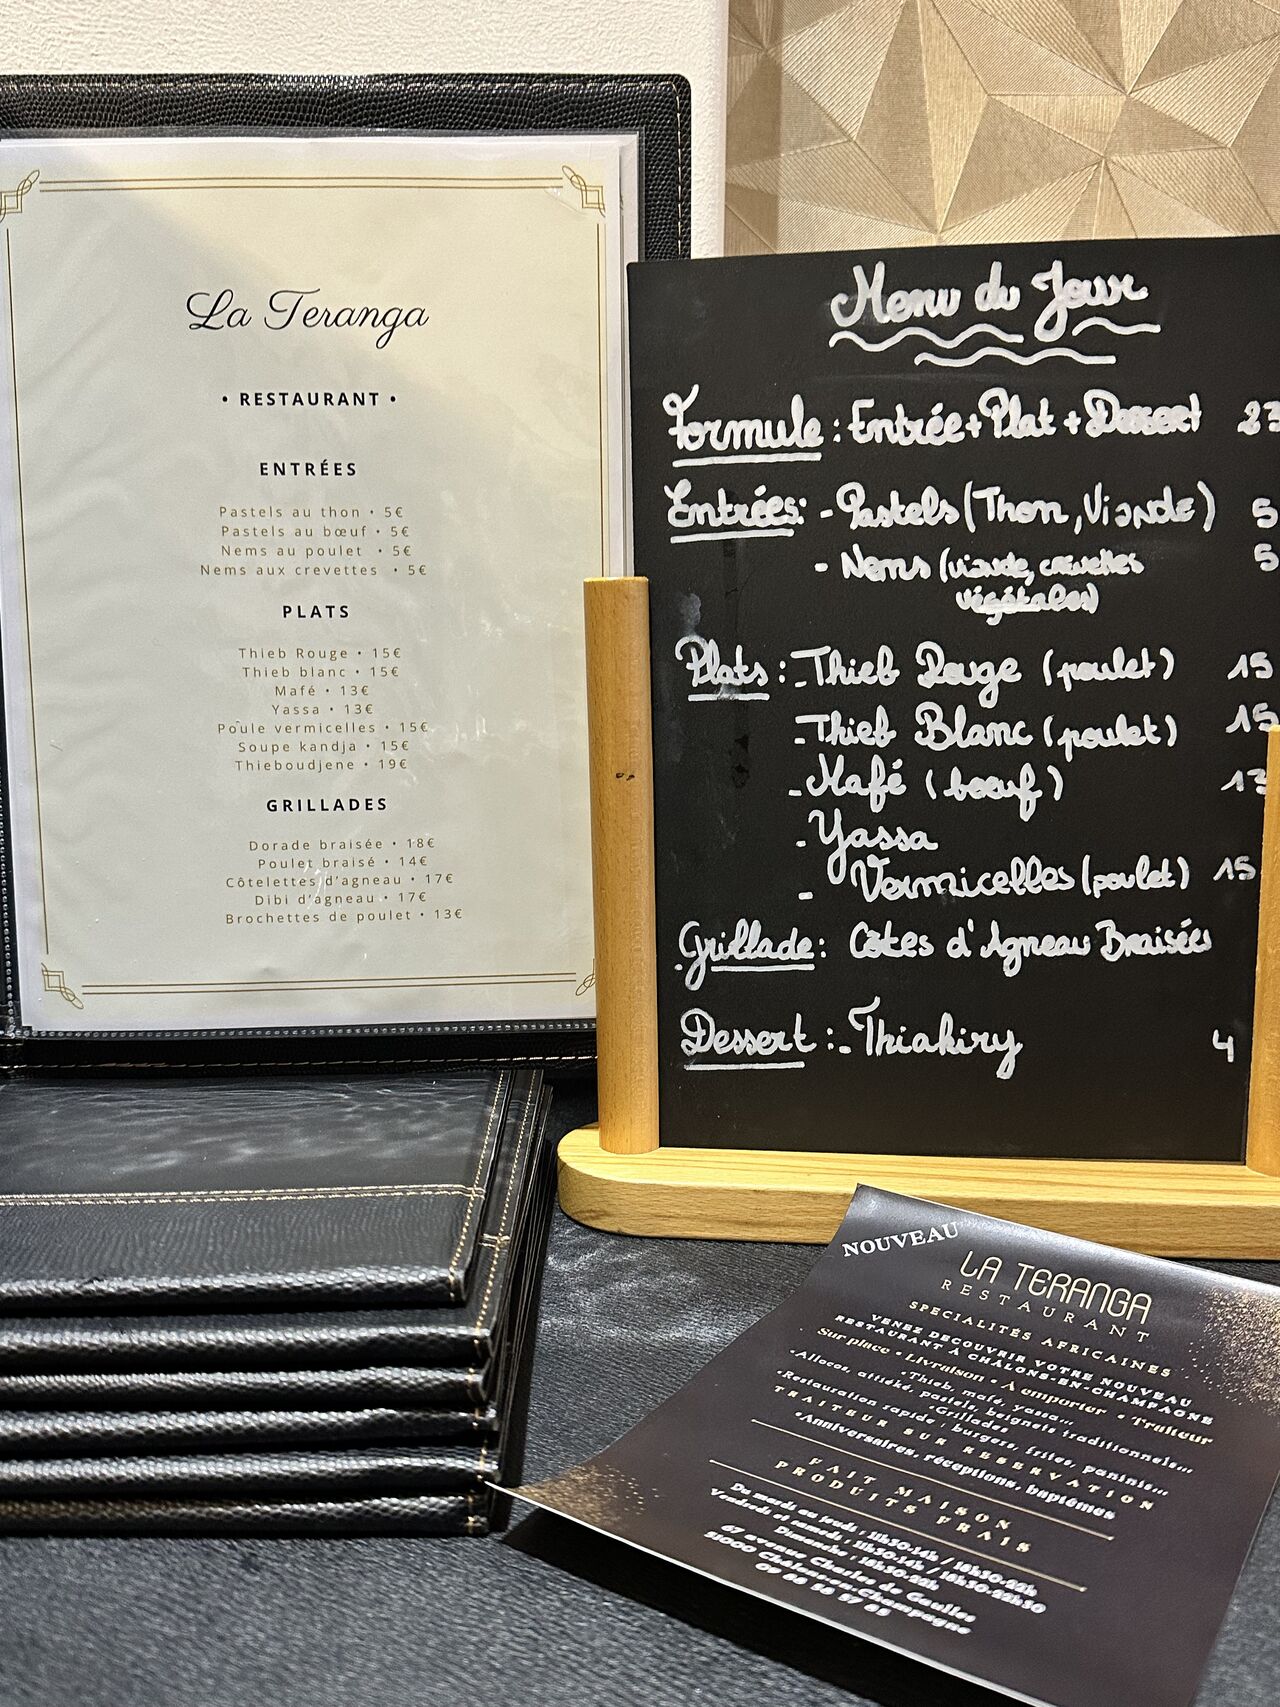 La Teranga
• RESTAURANT •
ENTRÉES
Pastels au thon • 5€
Pastels au bœuf • 5€
Nems au poulet • 5€
Nems aux crevettes • 5€
PLATS
Thieb Rouge • 15€
Thieb blanc • 15€
Mafé • 13€
Yassa • 13€
Poule vermicelles • 15€
Soupe kandja • 15€
Thieboudjene • 19€
GRILLADES
Dorade braisée • 18€
Poulet braisé • 14€
Côtelettes d'agneau • 17€
Dibi d'agneau • 17€
Brochettes de poulet • 13€
Menu du Jour
Formule : Entrée + Plat + Dessert 23
Entrées: - Pastels (Thon, Viande) 5
- Nems (viande, crevettes 5
végétales)
Plats : - Thieb Rouge (poulet) 15
- Thieb Blanc (poulet) 15
- Mafé (boeuf) 13
- Yassa
- Vermicelles (poulet) 15
Grillade : Côtes d'Agneau Braisées
Dessert : - Thiakiry 4
NOUVEAU
LA TERANGA
RESTAURANT
SPECIALITÉS AFRICAINES
VENEZ DECOUVRIR VOTRE NOUVEAU
RESTAURANT À CHÂLONS-EN-CHAMPAGNE
Sur place • Livraison • A emporter • Traiteur
•Thieb, mafé, yassa...
•Allocos, attiéké, pastels, beignets traditionnels...
•Grillades
•Restauration rapide : burgers, frites, paninis...
TRAITEUR SUR RESERVATION
•Anniversaires, réceptions, baptêmes
FAIT MAISON
PRODUITS FRAIS
Du mardi au jeudi : 11h30-14h / 18h30-22h
Vendredi et samedi : 11h30-14h / 18h30-22h30
Dimanche : 18h30-22h
67 avenue Charles de Gaulles
51000 Châlons-en-Champagne